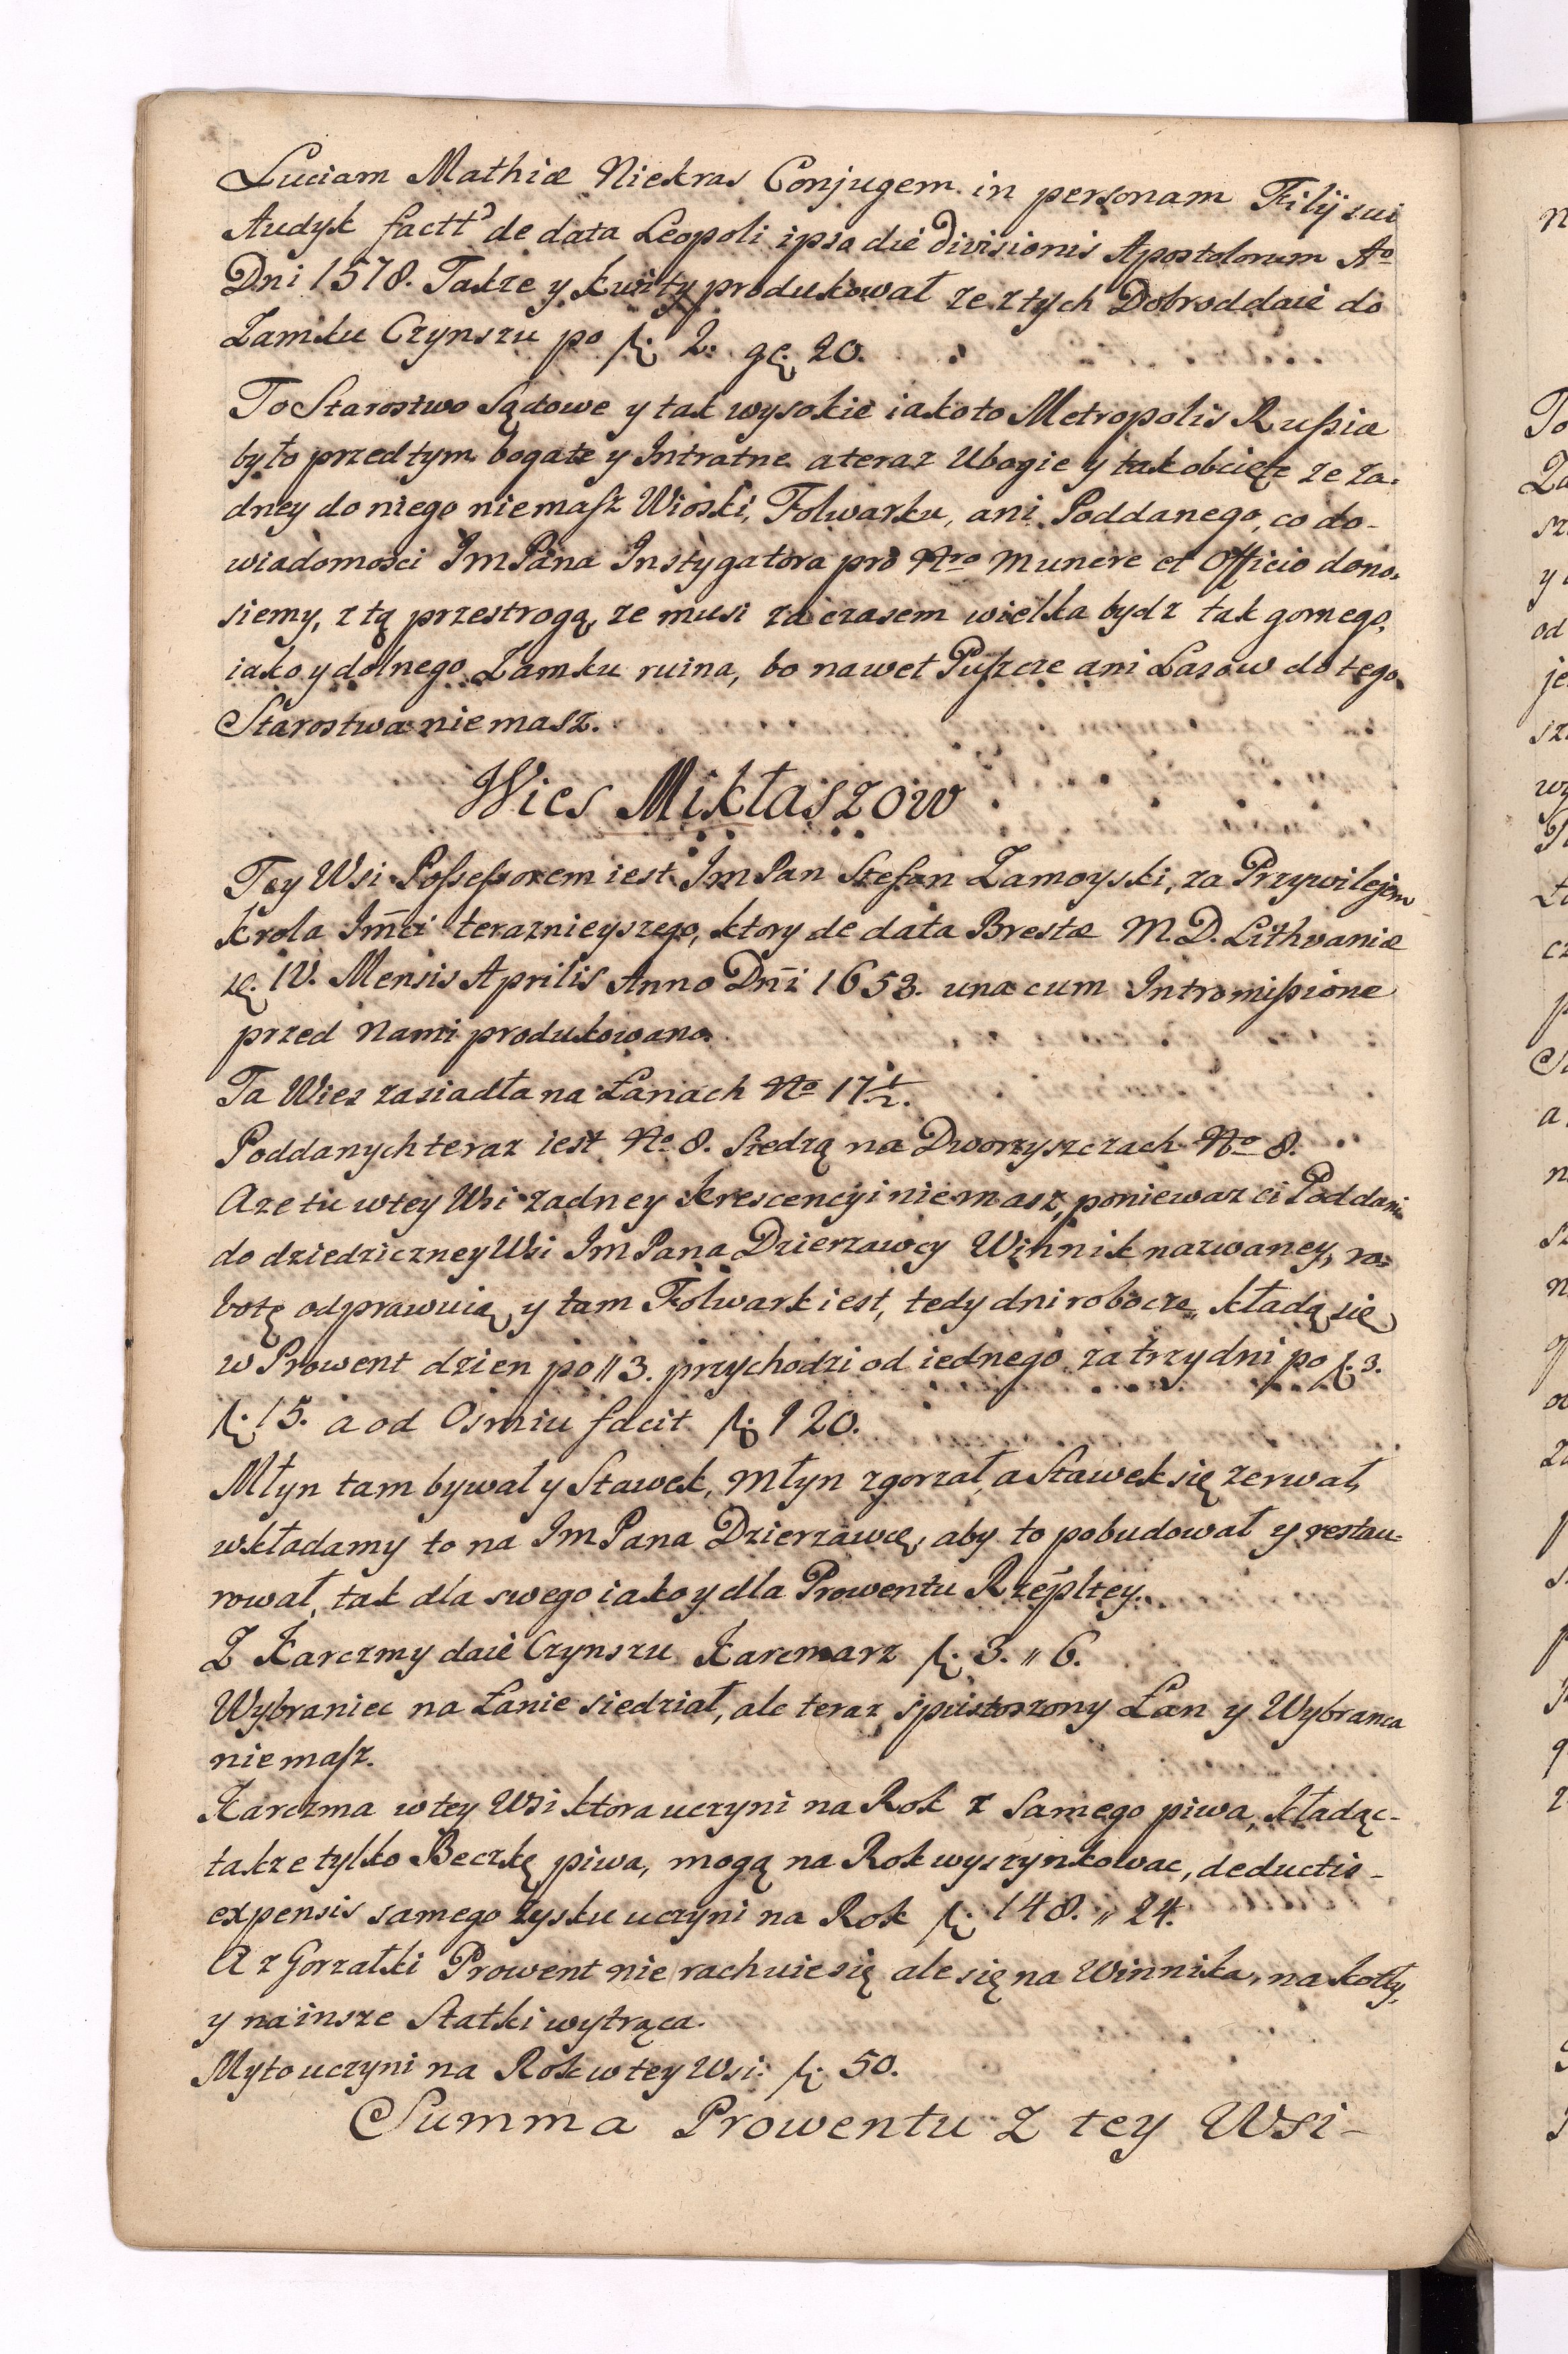 Luciam Mathiæ Niekras Conjugem in personam Filij sui
Audyk factt de data Leopoli ipsa die Divisionis Apostolorum Ao
Dni 1578. Takze y kwity produkował ze z tych Dobr oddaie do
Zamku Czynszu po f. 2. gr. 20.
To Starostwo Sądowe y tak wysokie iako to Metropolis Rußiæ
było przedtym bogate y Intratne a teraz Ubogie y tak obcięte ze za-
dney do niego niemaſz Wioski, Folwarku, ani Poddanego, co do-
wiadomości Im Pana Instygatora pro Nro munere et Officio dono-
siemy, z tą przestrogą, ze musi za czasem wielka bydz tak gornego,
iako y dolnego Zamku ruina, bo nawet Puſzcze ani Lasow do tego
Starostwa niemasz.
Wies Mikłaszow
Tey Wsi Poſseſsorem iest Im Pan Stefan Zamoyski, za Przywilejem
Krola Imci teraznieyszego, ktory de data Brestæ M. D. Lithvaniæ
IV. Mensis Aprilis Anno Dni 1653. una cum Intromißione
przed nami produkowano.
Ta Wies zasiadła na Łanach No 17 1/2.
Poddanych teraz iest No 8. Siedzą na Dworzyszczach No 8.
A ze tu w tey Wsi zadney krescencyi niemasz, poniewaz ci Poddani
do dziedziczney Wsi Im Pana Dzierzawcy Winnik nazwaney, ro-
botę odprawuią, y tam Folwark iest, tedy dni robocze, kładą się
w Prowent dzien po // 3. przychodzi od iednego za trzy dni po f. 3.
f. 15. a od Osmiu facit f. 120.
Młyn tam bywał y Stawek, młyn zgorzał, a Stawek się zerwał,
wkładamy to na Im Pana Dzierzawcę, aby to pobudował y restau-
rował, tak dla swego iako y dla Prowentu Rzepltey.
Z Karczmy daie Czynszu Karcmarz f. 3. // 6.
Wybraniec na Łanie siedział, ale teraz spustoszony Łan y Wybranca
niemaſz.
Karczma w tey Wsi ktora uczyni na Rok z samego piwa, kładąc-
takze tylko Beczkę piwa, mogą na Rok wyszynkowac, deductis-
expensis samego zysku uczyni na Rok f. 148. // 24.
A z Gorzałki Prowent nie rachuie się ale się na Winnika, na kotły,
y na insze Statki wytrąca.
Myto uczyni na Rok w tey Wsi: f. 50.
Summa Prowentu z tey Wsi-